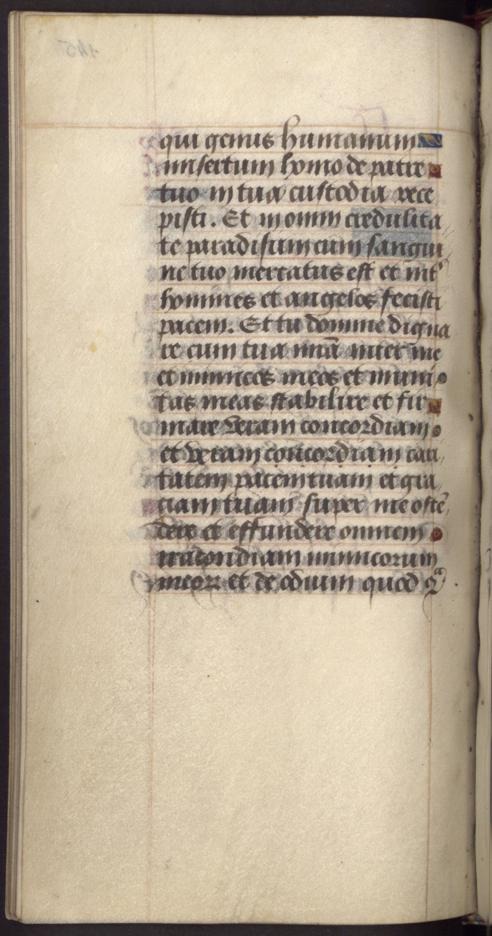 qui genus humanum
misertum homo de patre
tuo in tua custodia rece
pisti. Et in omni credulita
te paradisum cum sangui
ne tuo mercatus est et int̕
homines et angelos fecisti
pacem. Et tu domine digna
re cum tua mīa inter me
et inimicos meos et inimi
tas meas stabilire et fir
mare veram concordiam
et veram concordiam cari
tatem pacem tuam et gra
ciam tuam super me ostē
dere et effundere omnem
iracondiam inimicorum
meoꝝ et de odium quod